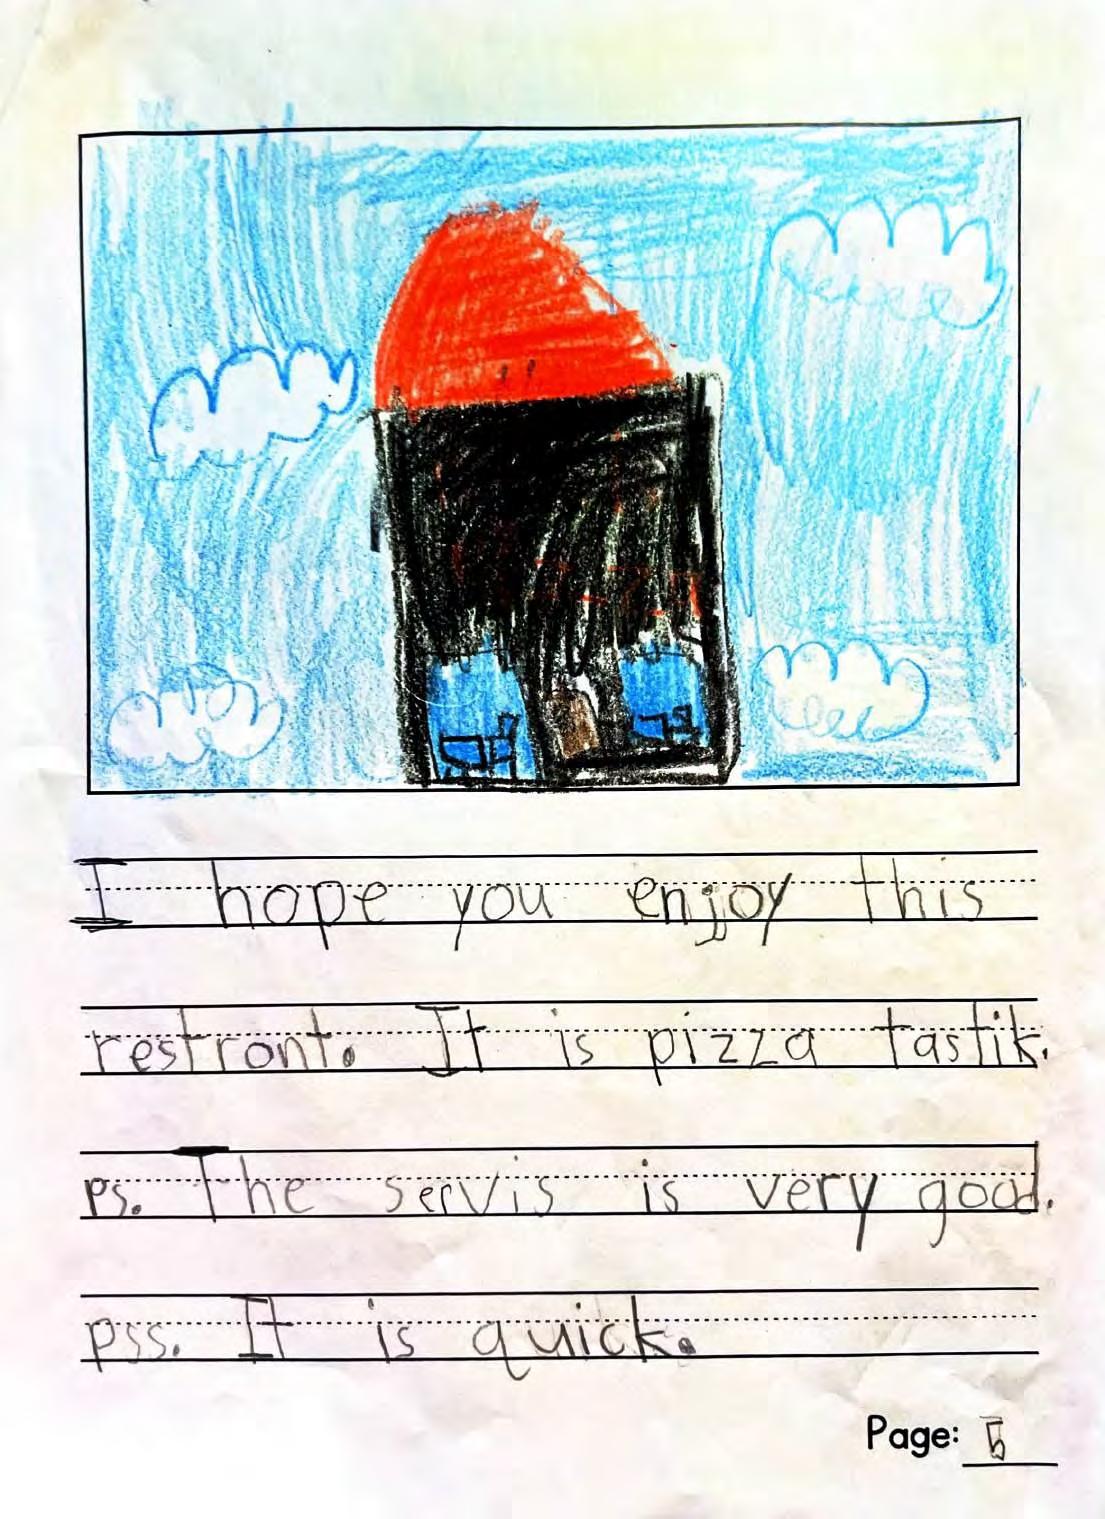 I hope you enjoy this
restront. It is pizza tastik.
ps. The servis is very good.
pss. It is quick.
Page: 5